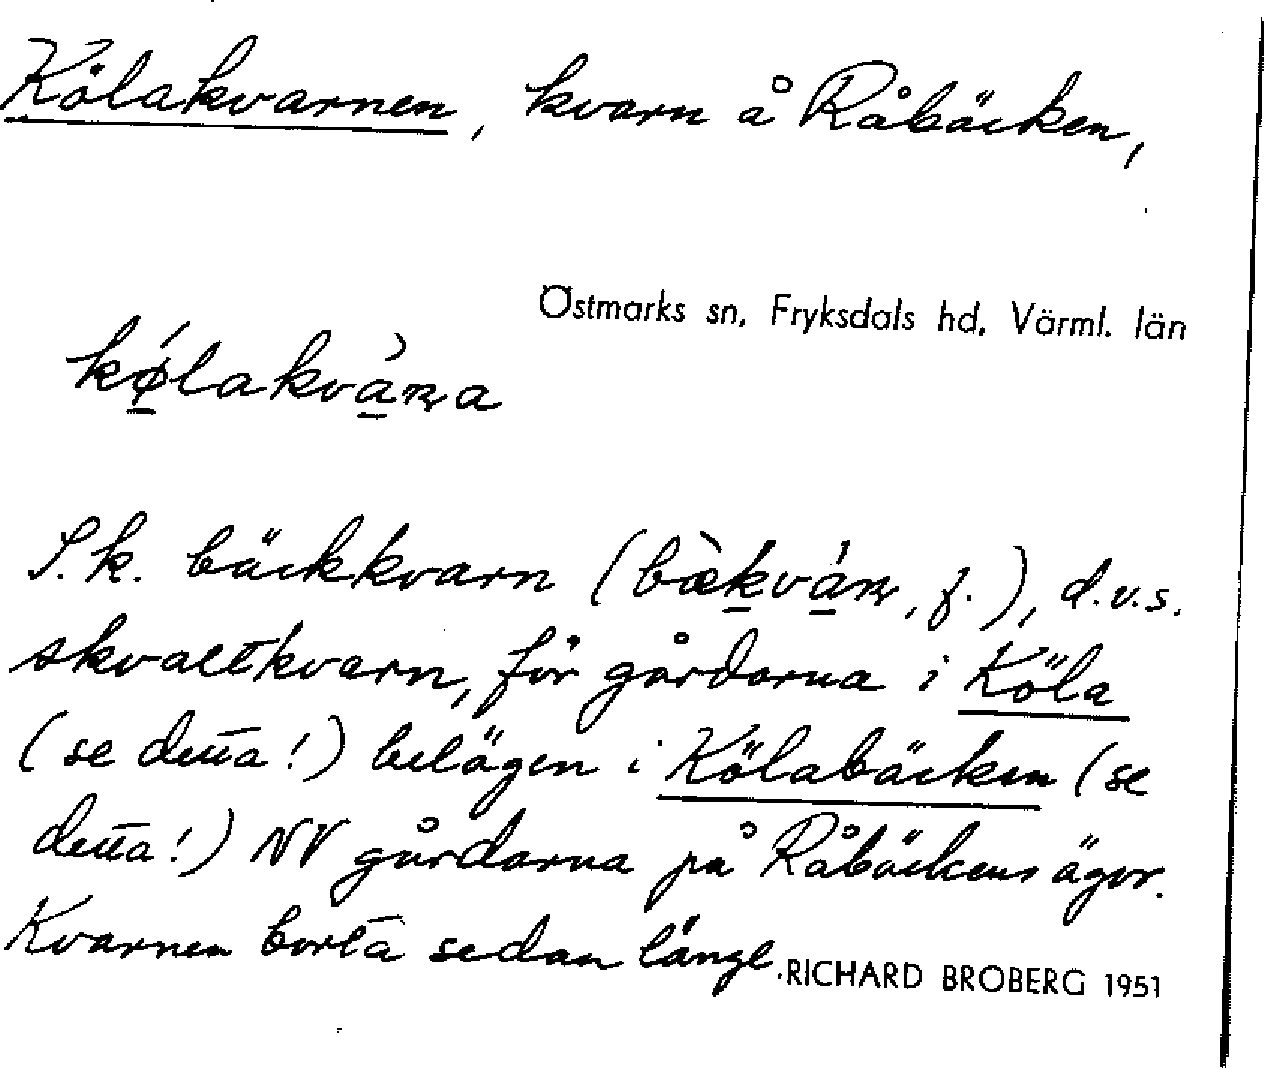 Kölakvarnen, kvarn å Råbäcken,
Östmarks sn, Fryksdals hd, Värml. län
kǿ̱lakvà̱ɳa
S.k. bäckkvarn (bæ̀ḵvá̱ɳ, f.), d.v.s.
skvaltkvarn, för gårdarna i Köla
(se detta!) belägen i Kölabäcken (se
detta!) NV gårdarna på Råbäckens ägor.
Kvarnen borta sedan länge.
RICHARD BROBERG 1951